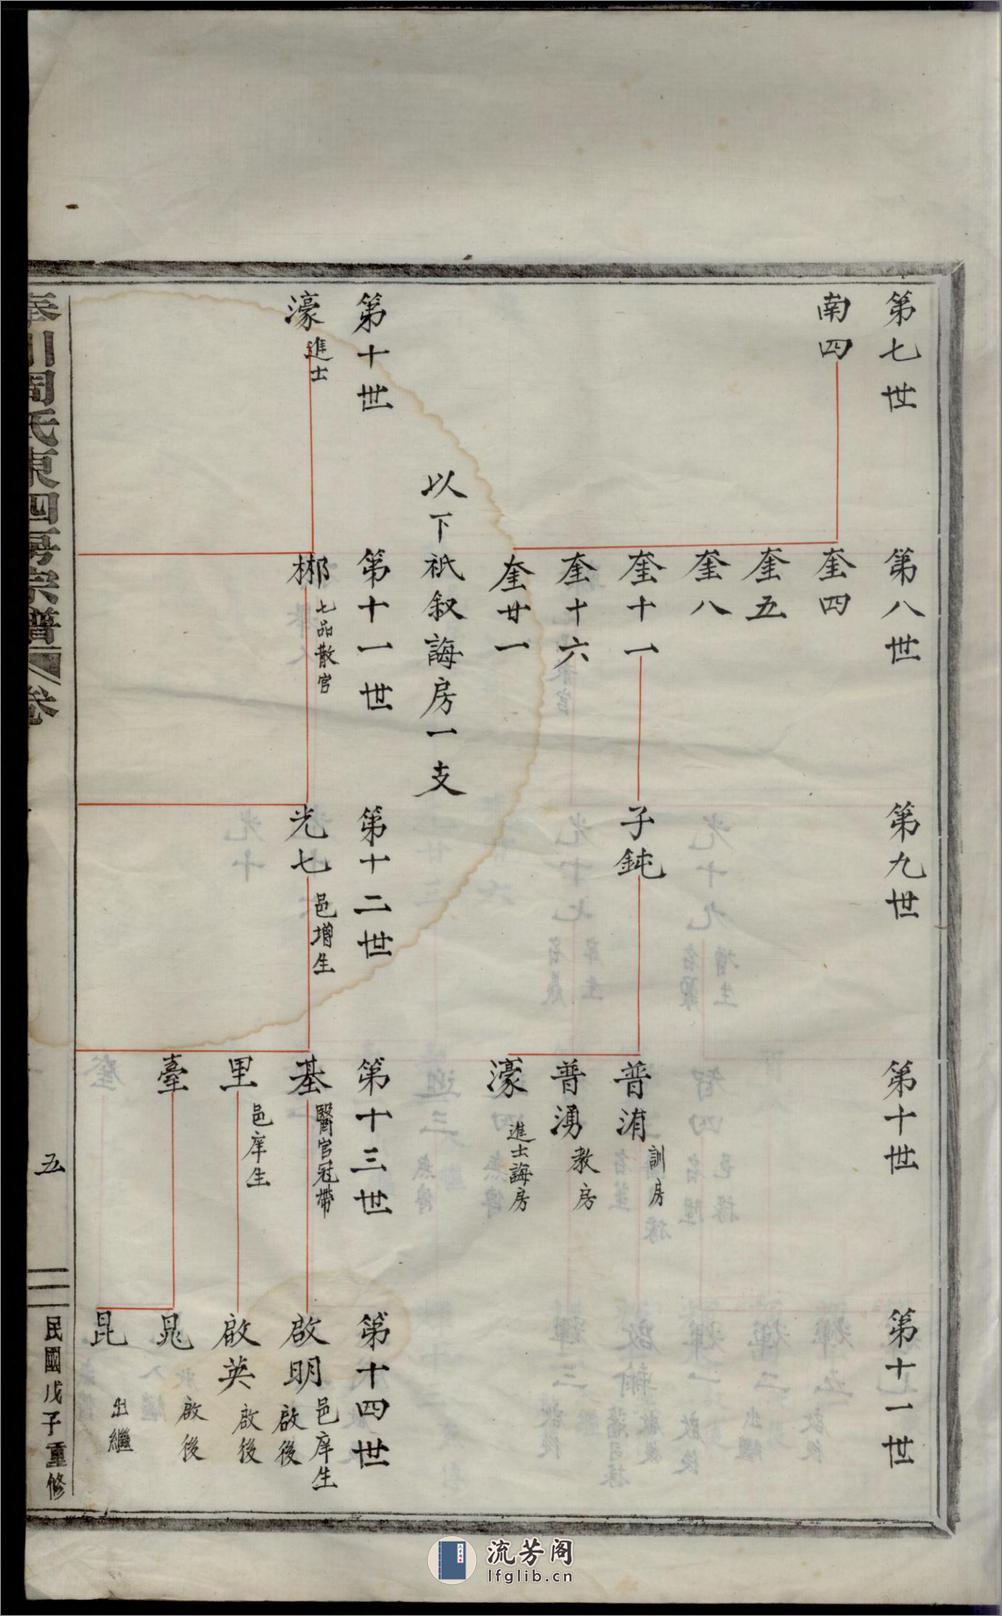 第七世
南四
第八世
奎四
奎五
奎八
奎十一
奎十六
奎廿一
第九世
子鈍
第十世
普淯 訓房
普湧 教房
濠 進士誨房
第十一世
以下衹叙誨房一支
第十世
濠 進士
第十一世
郴 七品散官
第十二世
光七 邑增生
第十三世
基 醫官冠帶
里 邑庠生
臺
第十四世
啟明 邑庠生 啟後
啟英 啟後
晁 啟後
昆 出繼
奉川周氏東四房宗譜 卷
五
民國戊子重修
流芳阁
lfglib.cn